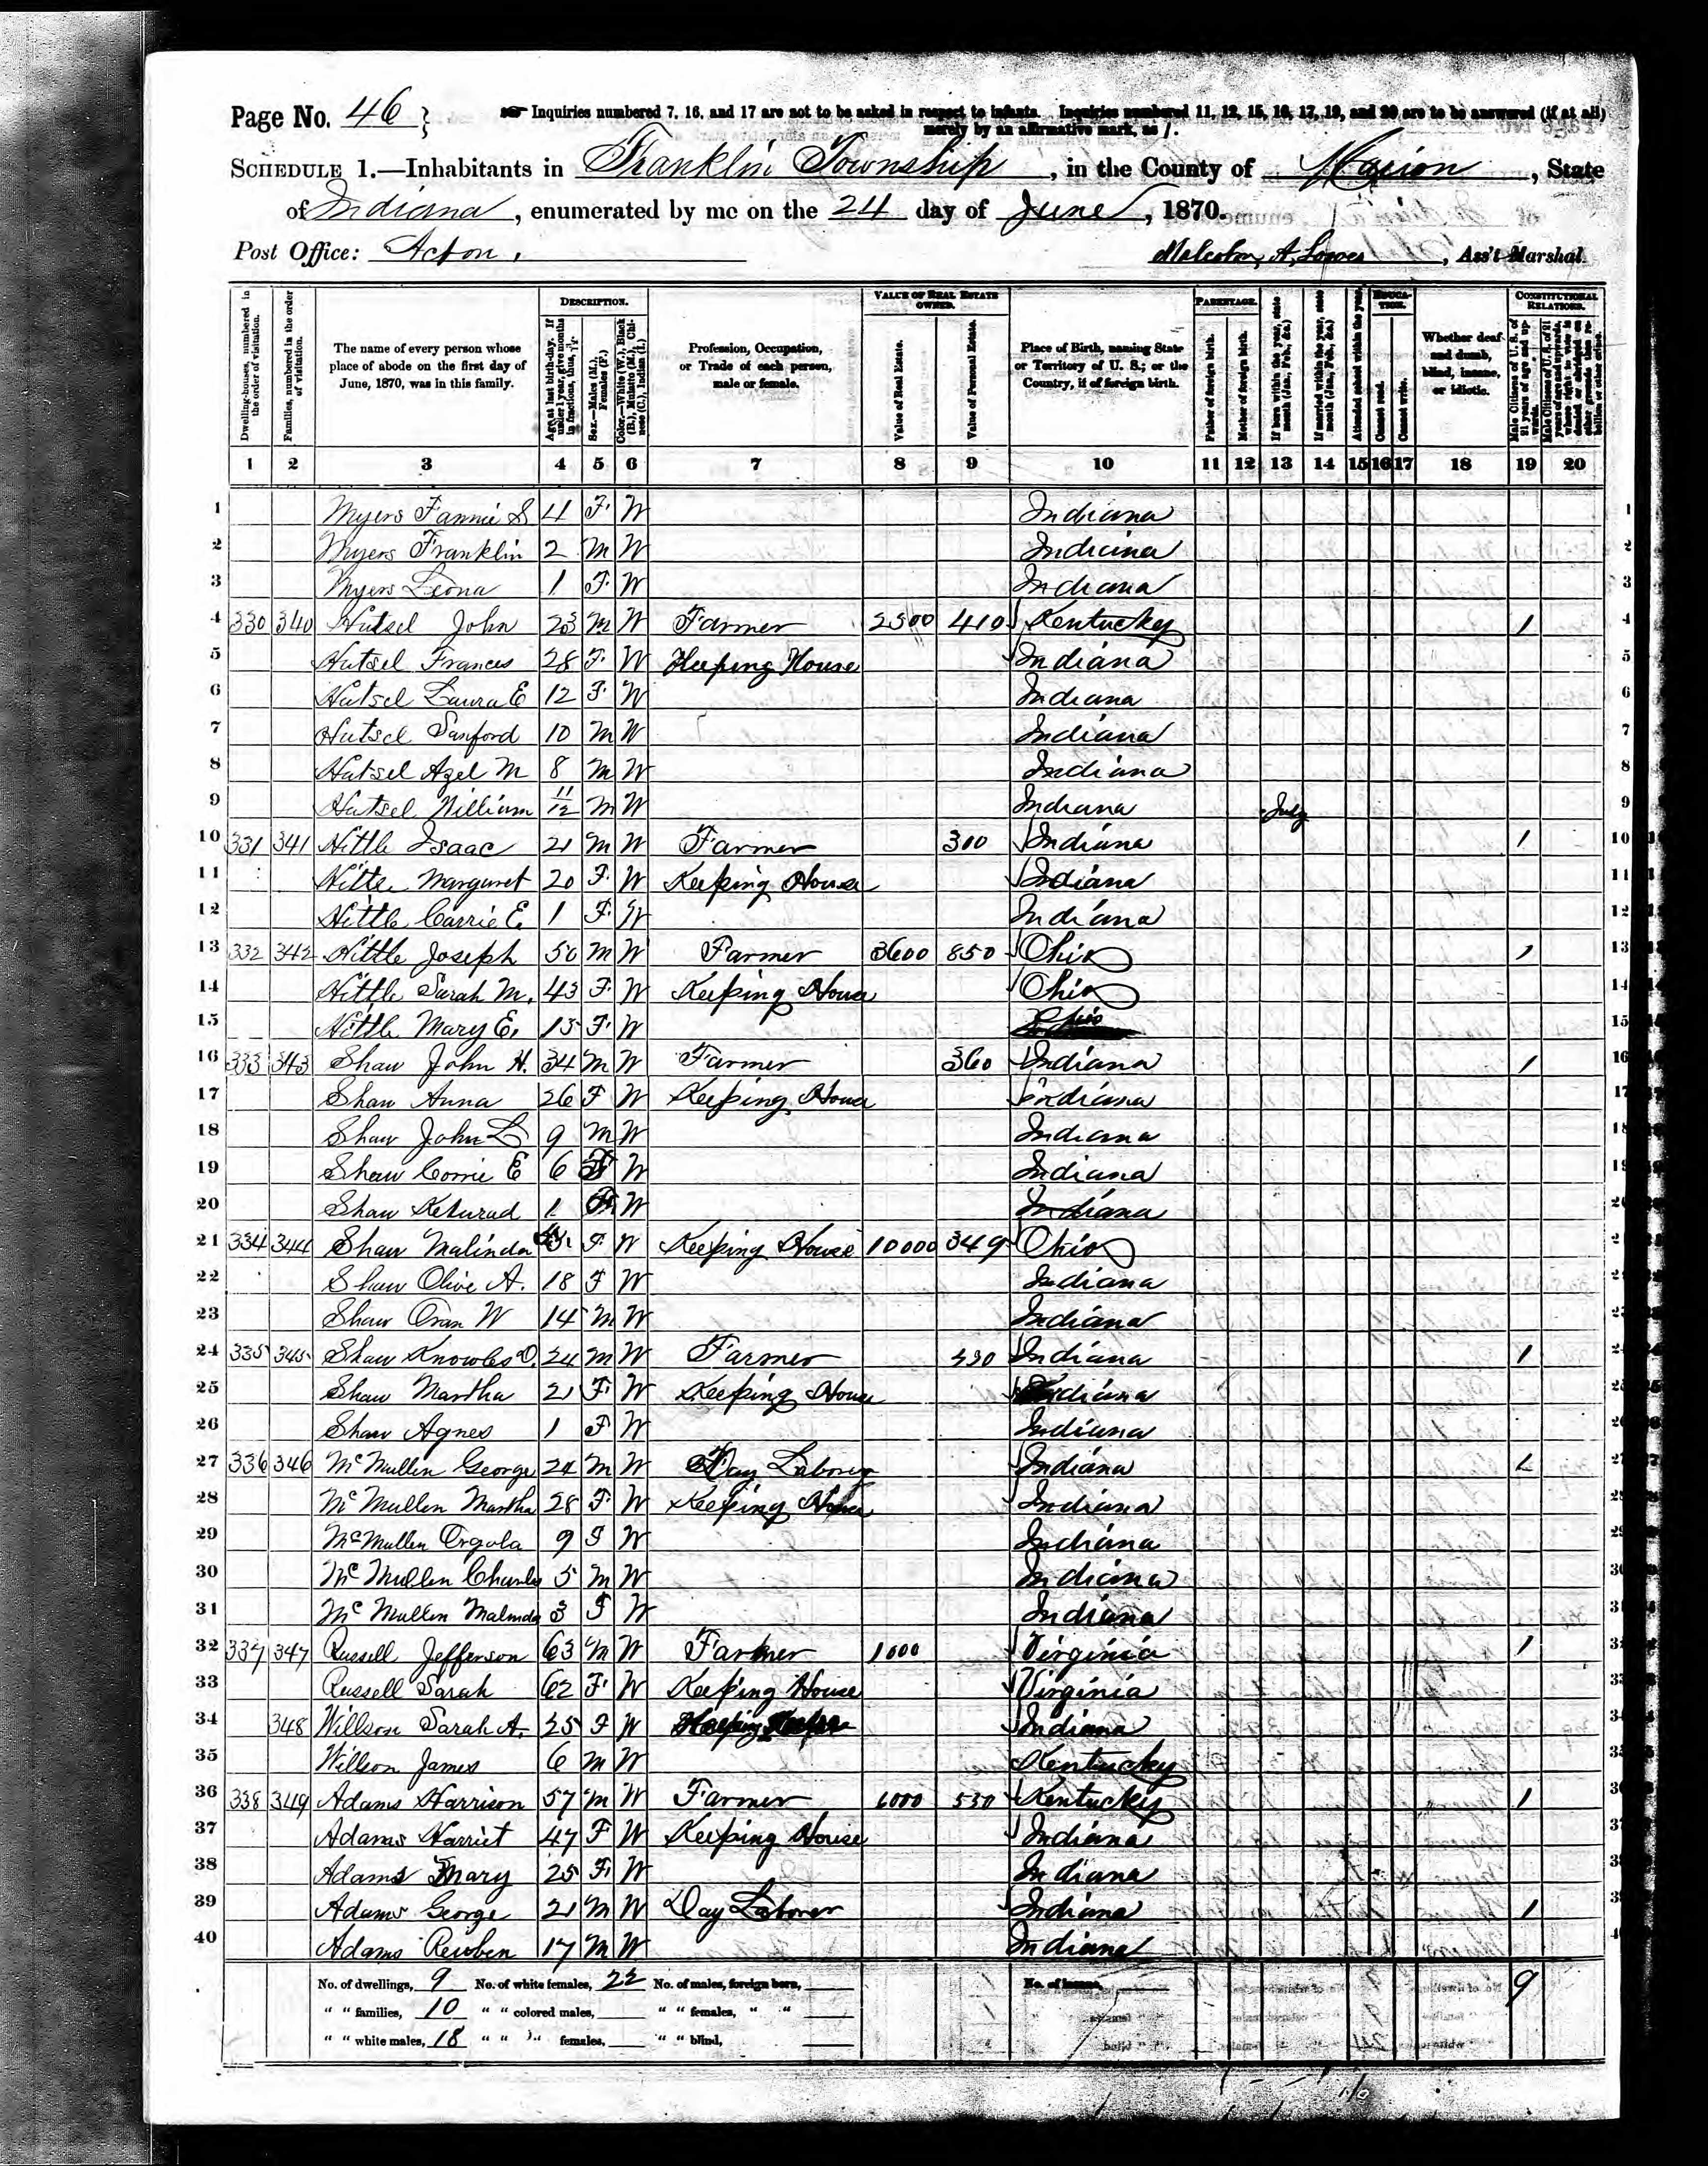 Page No. 46 } Inquiries numbered 7, 16, and 17 are not to be asked in respect to infants. Inquiries numbered 11, 12, 15, 16, 17, 19, and 20 are to be answered (if at all)
merely by an affirmative mark, as /.
SCHEDULE 1.—Inhabitants in Franklin Township, in the County of Marion, State
of Indiana, enumerated by me on the 24 day of June, 1870.
Post Office: Acton. Malcolm A. Ass't Marshal.
Dwelling-houses, numbered in the order of visitation.
Families, numbered in the order of visitation.
The name of every person whose place of abode on the first day of June, 1870, was in this family.
DESCRIPTION.
Age at last birth-day. If under 1 year, give months in fractions, thus, 3/12.
Sex.—Males (M.), Females (F.)
Color.—White (W.), Black (B.), Mulatto (M.), Chinese (C.), Indian (I.)
Profession, Occupation, or Trade of each person, male or female.
VALUE OF REAL ESTATE OWNED.
Value of Real Estate.
Value of Personal Estate.
Place of Birth, naming State or Territory of U. S.; or the Country, if of foreign birth.
PARENTAGE.
Father of foreign birth.
Mother of foreign birth.
If born within the year, state month (Jan., Feb., &c.)
If married within the year, state month (Jan., Feb., &c.)
Attended school within the year.
EDUCATION.
Cannot read.
Cannot write.
Whether deaf and dumb, blind, insane, or idiotic.
CONSTITUTIONAL RELATIONS.
Male Citizens of U. S. of 21 years of age and upwards.
Male Citizens of U. S. of 21 years of age and upwards, whose right to vote is denied or abridged on other grounds than rebellion or other crime.
1 2 3 4 5 6 7 8 9 10 11 12 13 14 15 16 17 18 19 20
1 Myers Fannie S 4 F W Indiana 1
2 Myers Franklin 2 M W Indiana 2
3 Myers Leona 1 F W Indiana 3
4 330 340 Hutsel John M W Farmer 2500 410 Kentucky 1 4
5 Hutsel Frances 28 F W Keeping House Indiana 5
6 Hutsel Laura E 12 F W Indiana 6
7 Hutsel Sanford 10 M W Indiana 7
8 Hutsel Azel M 8 M W Indiana 8
9 Hutsel William 11/12 M W Indiana July 9
10 331 341 Nittle Isaac 21 M W Farmer 300 Indiana 1 10
11 Nittle Margaret 20 F W Keeping House Indiana 11
12 Nittle Carrie E. 1 F W Indiana 12
13 332 342 Nittle Joseph 50 M W Farmer 3600 850 Ohio 1 13
14 Nittle Sarah M. 43 F W Keeping House Ohio 14
15 Nittle Mary E. 15 F W Ohio 15
16 333 343 Shaw John H. 34 M W Farmer 360 Indiana 1 16
17 Shaw Anna 26 F W Keeping House Indiana 17
18 Shaw John L 9 M W Indiana 18
19 Shaw Corrie E 6 F W Indiana 19
20 Shaw Keturad 1 F W Indiana 20
21 334 344 Shaw Malinda F W Keeping House 10000 349 Ohio 21
22 Shaw Olive A. 18 F W Indiana 22
23 Shaw Oran W 14 M W Indiana 23
24 335 345 Shaw Knowles D. 24 M W Farmer 330 Indiana 1 24
25 Shaw Martha 21 F W Keeping House Indiana 25
26 Shaw Agnes 1 F W Indiana 26
27 336 346 McMullen George 24 M W Day Laborer Indiana 1 27
28 McMullen Martha 28 F W Keeping House Indiana 28
29 McMullen Orgola 9 F W Indiana 29
30 McMullen Charles 5 M W Indiana 30
31 McMullen Malinda 3 F W Indiana 31
32 337 347 Russell Jefferson 63 M W Farmer 1000 Virginia 1 32
33 Russell Sarah 62 F W Keeping House Virginia 33
34 348 Willson Sarah A. 25 F W Indiana 34
35 Willson James 6 M W Kentucky 35
36 338 349 Adams Harrison 57 M W Farmer 6000 530 Kentucky 1 36
37 Adams Harriet 47 F W Keeping House Indiana 37
38 Adams Mary 25 F W Indiana 38
39 Adams George 21 M W Day Laborer Indiana 1 39
40 Adams Reuben 17 M W Indiana 40
No. of dwellings, 9 No. of white females, 22 No. of males, foreign born, No. of insane, 9
" " families, 10 " " colored males, " " females, " "
" " white males, 18 " " " females, " " blind,